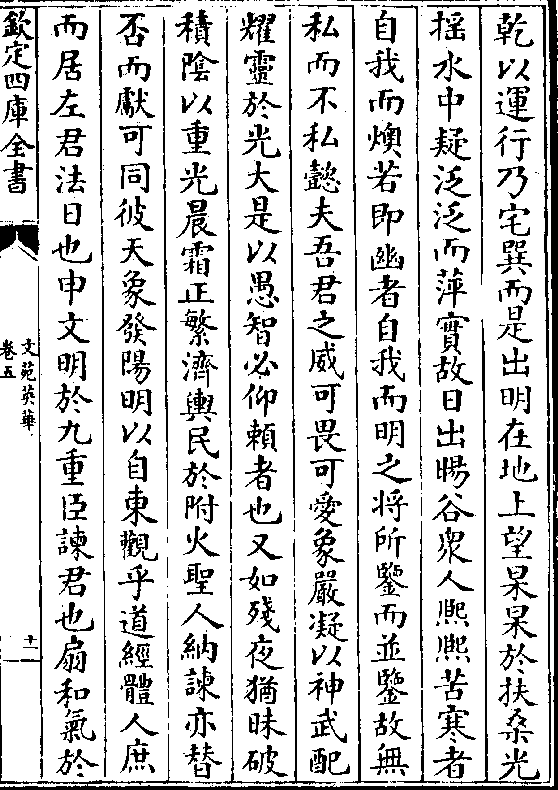 乾以運行乃宅巽而是出明在地上望杲杲於扶桑光
揺水中疑泛泛而萍實故日出暘谷衆人熈熈苦寒者
自我而燠若即幽者自我而明之将所鑒而並鑒故無
私而不私懿夫吾君之威可畏可愛象嚴凝以神武配
耀靈於光大是以愚智必仰賴者也又如殘夜猶昧破
積陰以重光晨霜正繁濟輿民於附火聖人納諫亦替
否而獻可同彼天象發陽明以自東觀乎道經體人庶
而居左君法日也申文明於九重臣諫君也扇和氣於
欽定四庫全書
文苑英華
卷五
十一